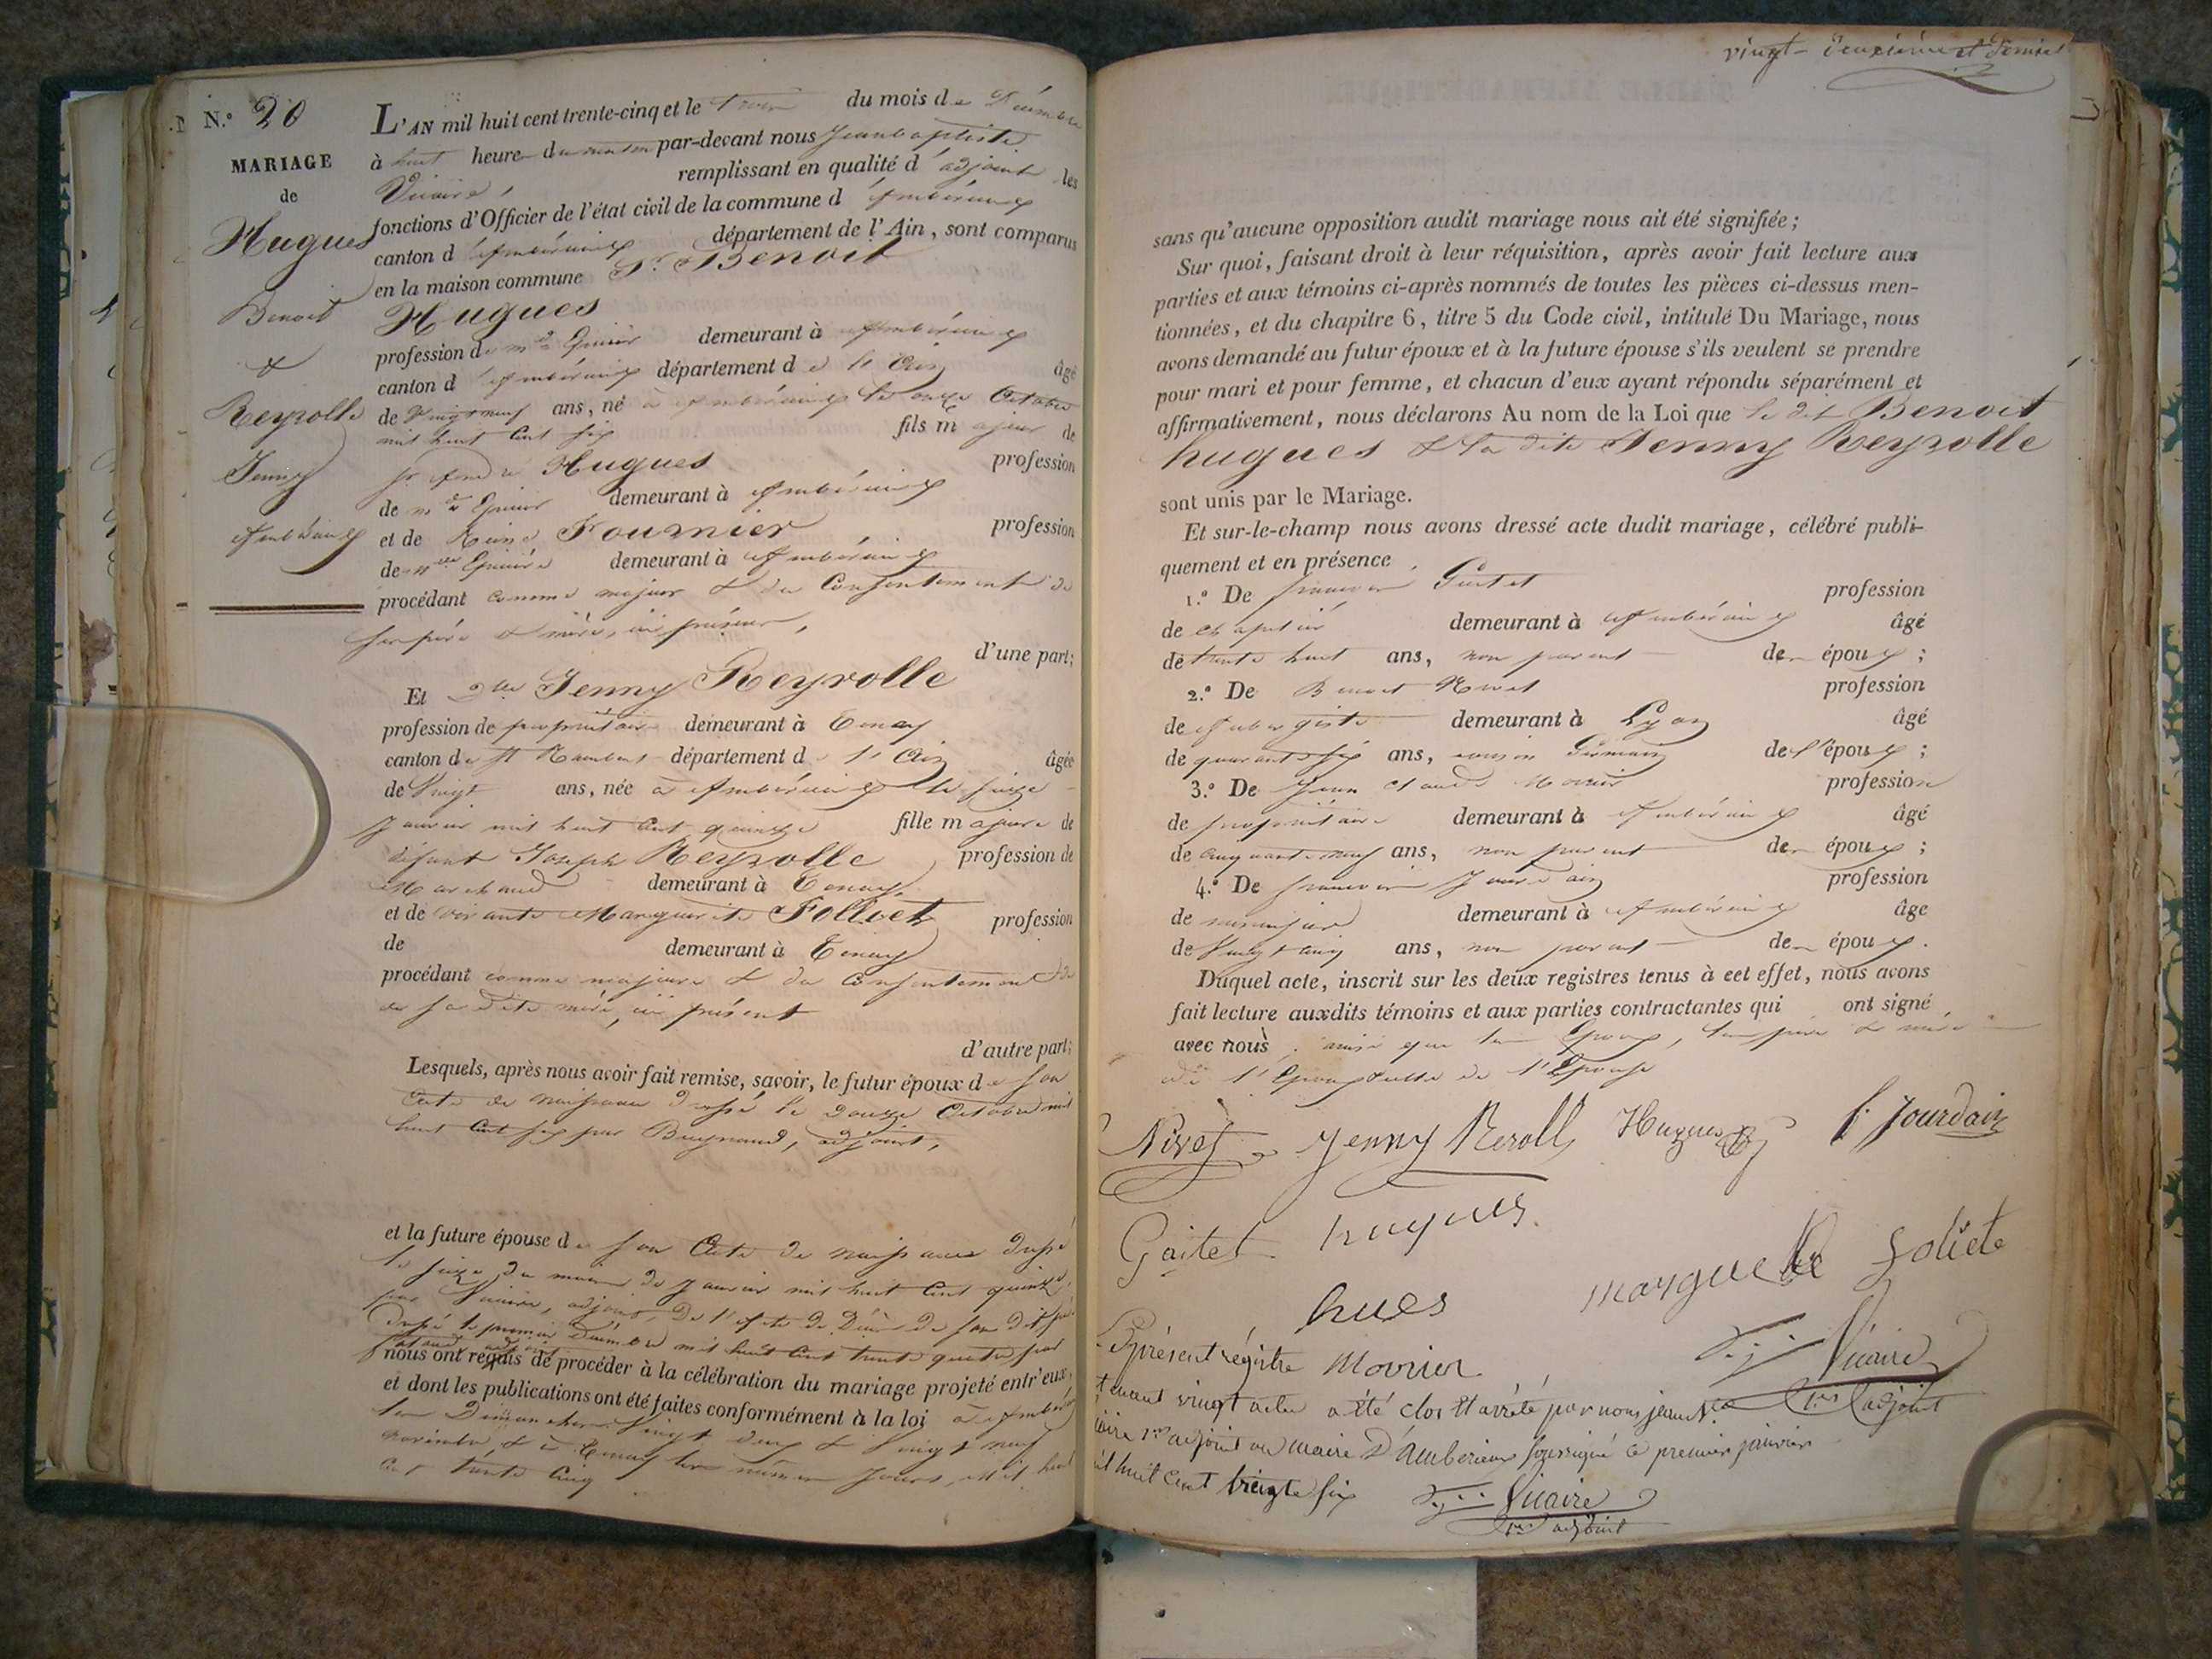 N.º 20
MARIAGE
de
Hugues
Benoit
&
Reyrolle
Jenny
Ambérieux
L'AN mil huit cent trente-cinq et le trois du mois de Décembre
à huit heures du matin par-devant nous Jean baptiste
Vicaire, remplissant en qualité d'adjoint les
fonctions d'Officier de l'état civil de la commune d'Ambérieux
canton d'Ambérieux département de l'Ain, sont comparus
en la maison commune Sr. Benoit
Hugues
profession de md. Epicier demeurant à Ambérieux
canton d'Ambérieux département de l'Ain âgé
de Vingt neuf ans, né à Ambérieux le onze Octobre
mil huit cent six fils majeur de
Hugues profession
de md. Epicier demeurant à Ambérieux
et de Reine Fournier profession
de Epicière demeurant à Ambérieux
procédant comme majeur & du Consentement de
ses père & mère, ici présens,
d'une part;
Et Dlle Jenny Reyrolle
profession de propriétaire demeurant à Tenay
canton de St Rambert département de l'Ain âgée
de Vingt ans, née à Ambérieux le seize
Janvier mil huit cent quinze fille majeure de
défunt Joseph Reyrolle profession de
Marchand demeurant à Tenay,
et de vivante Marguerite Folliet profession
de demeurant à Tenay
procédant comme majeure & du Consentement de
sa dite mère, ici présente
d'autre part;
Lesquels, après nous avoir fait remise, savoir, le futur époux de son
Acte de naissance dressé le douze Octobre mil
huit cent six par adjoint,
et la future épouse de son Acte de naissance dressé
le seize du mois de Janvier mil huit cent quinze,
par Vicaire, adjoint, De l'Acte de Décès de son dit père
Dressé le premier Décembre mil huit cent trente quatre par
nous ont requis de procéder à la célébration du mariage projeté entr'eux,
et dont les publications ont été faites conformément à la loi à Ambérieux
les Dimanches Vingt deux & Vingt neuf
novembre, & à Tenay les mêmes Jours, mil huit
cent trente cinq
vingt-deuxième et dernier
sans qu'aucune opposition audit mariage nous ait été signifiée;
Sur quoi, faisant droit à leur réquisition, après avoir fait lecture aux
parties et aux témoins ci-après nommés de toutes les pièces ci-dessus men-
tionnées, et du chapitre 6, titre 5 du Code civil, intitulé Du Mariage, nous
avons demandé au futur époux et à la future épouse s'ils veulent se prendre
pour mari et pour femme, et chacun d'eux ayant répondu séparément et
affirmativement, nous déclarons Au nom de la Loi que le dit Benoit
hugues & la dite Jenny Reyrolle
sont unis par le Mariage.
Et sur-le-champ nous avons dressé acte dudit mariage, célébré publi-
quement et en présence
1.º De françois profession
de chapelier demeurant à Ambérieux âgé
de trente huit ans, non parent des époux;
2.º De Benoit Nivet profession
de Aubergiste demeurant à Lyon âgé
de quarante six ans, cousin Germain de l'époux;
3.º De Jean Claude Movrier profession
de propriétaire demeurant à Ambérieux âgé
de cinquante neuf ans, non parent des époux;
4.º De françois Jourdain profession
de menuisier demeurant à Ambérieux âge
de Vingt cinq ans, non parent des époux.
Duquel acte, inscrit sur les deux registres tenus à cet effet, nous avons
fait lecture auxdits témoins et aux parties contractantes qui ont signé
avec nous, ainsi que les Epoux, les père & mère
de l'Epoux & celle de l'Epouse
Nivet Jenny Reroll Hugues f. Jourdain
Gaitet hugues
hues marguerite foliete
Movrier Vicaire
1er adjoint
Le présent régistre
tenant vingt actes a été clos et arrêté par nous jean Bte
Vicaire 1er adjoint au maire D'Ambérieux soussigné ce premier janvier
mil huit cent trente six
Vicaire
1er adjoint